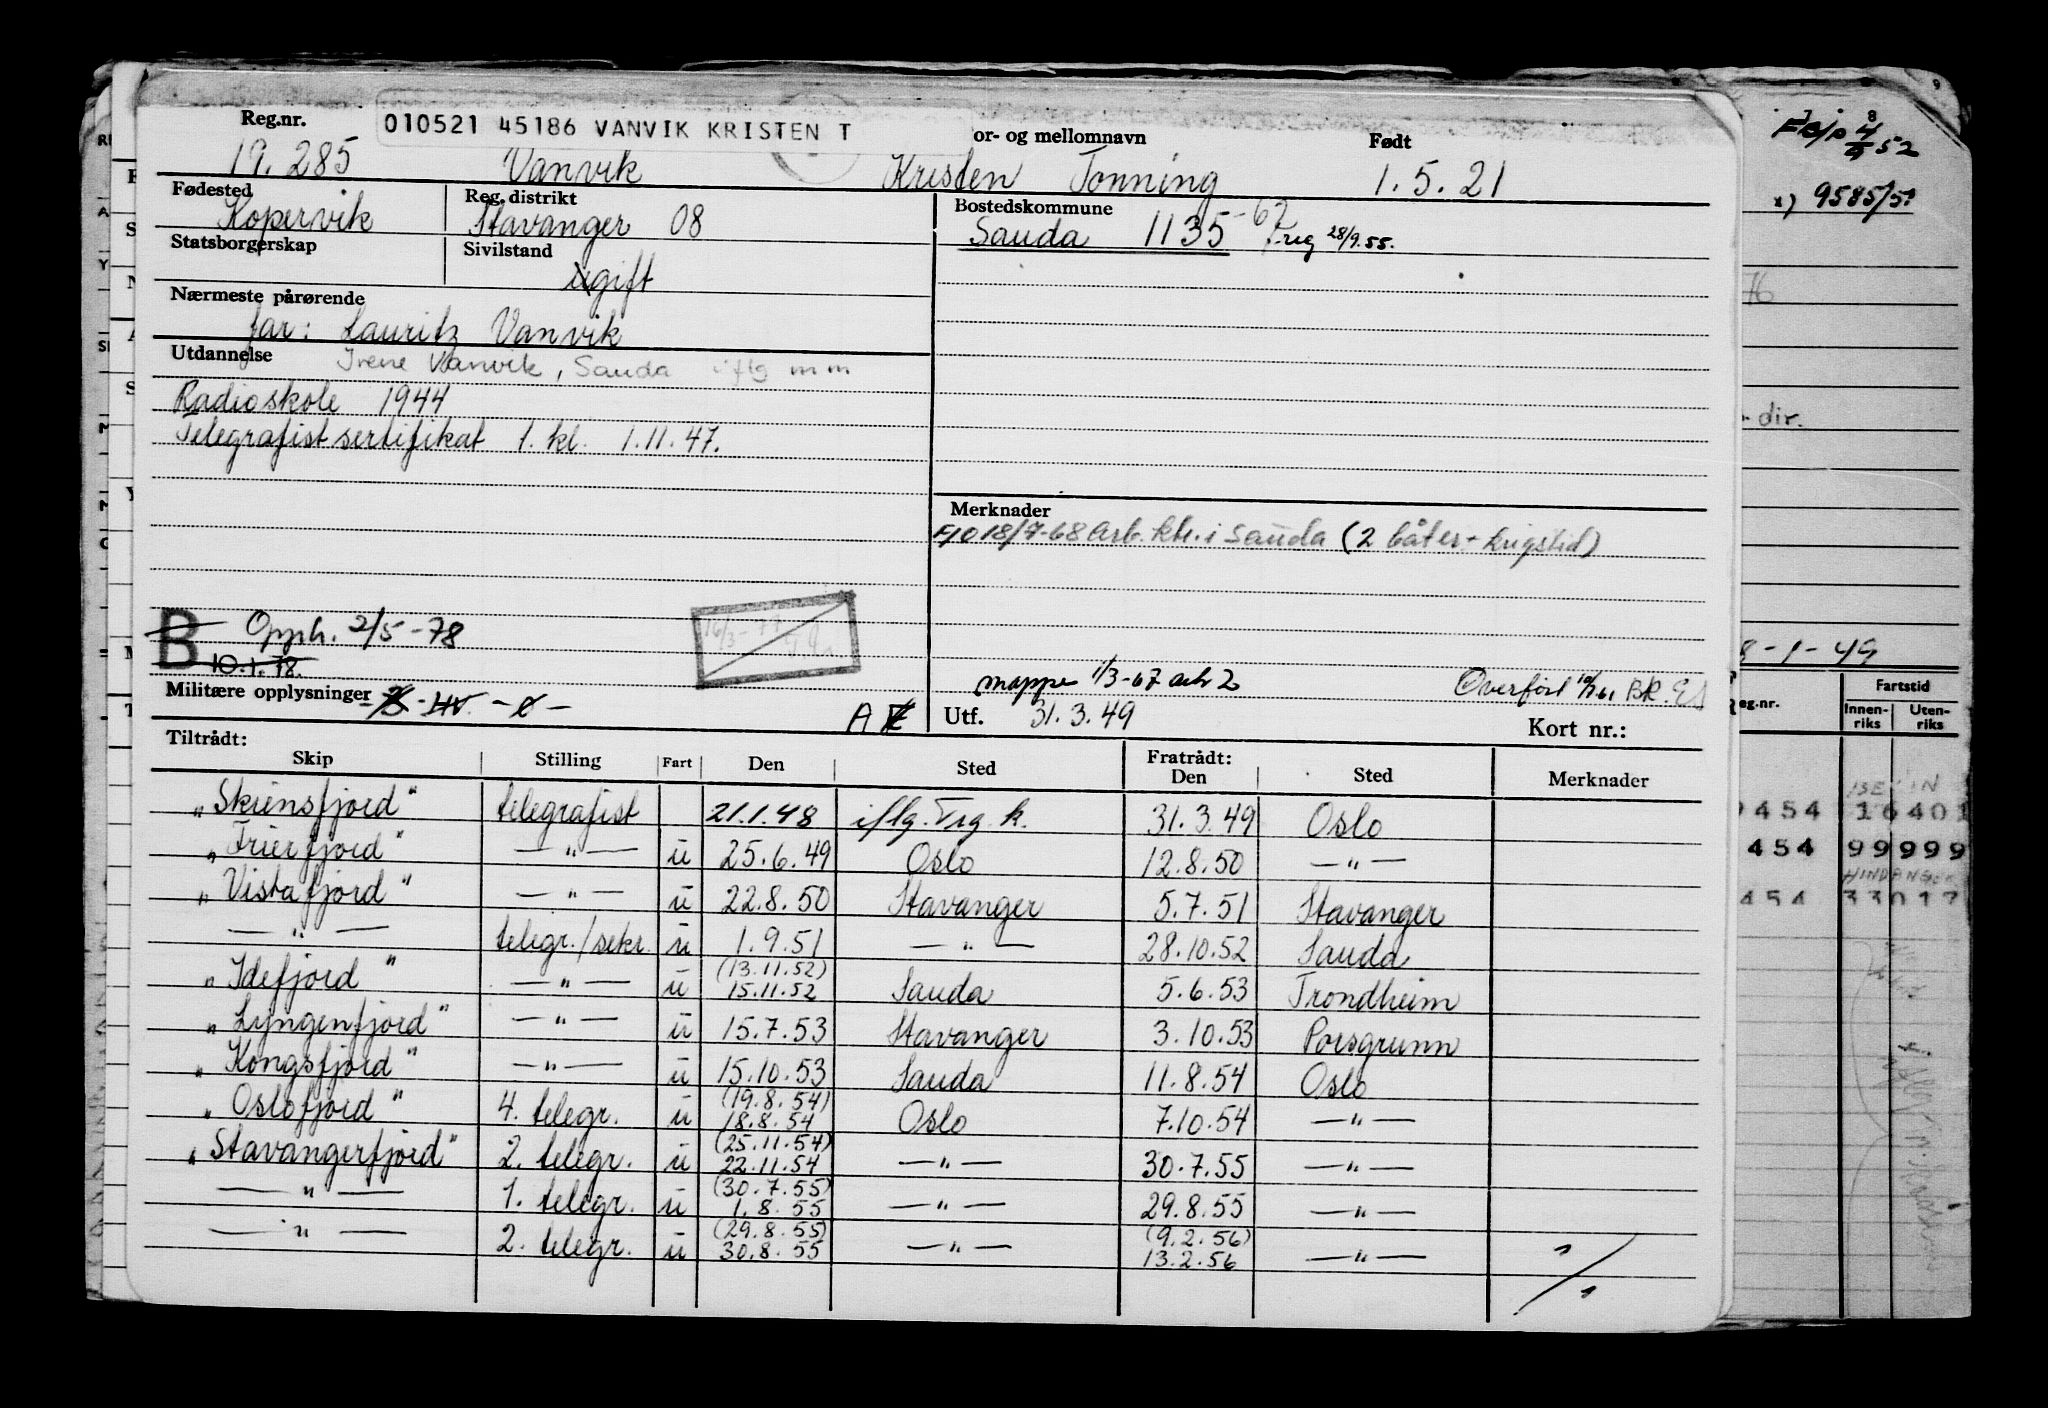 010521 45186 VANVIK KRISTEN T
Reg.nr. or- og mellomnavn Født
19.285 Vanvik Kristen Tonning 1.5.21
Fødested Reg. distrikt Bostedskommune
Kopervik Stavanger 08 Sauda 1135-62 reg 28/9.55.
Statsborgerskap Sivilstand
ugift
Nærmeste pårørende
far: Lauritz Vanvik
Utdannelse Irene Vanvik, Sauda iflg mm
Radioskole 1944
Telegrafistsertifikat 1. kl. 1.11.47.
Merknader
F/O 18/7-68 arb. ktr. i Sauda (2 båter - krigstid)
B Opph. 2/5-78
10.1.78.
16/3-77
Militære opplysninger
mappe 1/3-67 ark 2 Overført 10/7.61 BR. ES
A E Utf. 31.3.49 Kort nr.:
Tiltrådt: Fratrådt:
Skip Stilling Fart Den Sted Den Sted Merknader
"Skiensfjord" telegrafist 21.1.48 iflg. Trg. k. 31.3.49 Oslo
"Frierfjord" — " — u 25.6.49 Oslo 12.8.50 — " —
"Vistafjord" — " — u 22.8.50 Stavanger 5.7.51 Stavanger
— " — telegr./sekr. u 1.9.51 — " — 28.10.52 Sauda
(13.11.52)
"Idefjord" — " — u 15.11.52 Sauda 5.6.53 Trondheim
"Lyngenfjord" — " — u 15.7.53 Stavanger 3.10.53 Porsgrunn
"Kongsfjord" — " — u 15.10.53 Sauda 11.8.54 Oslo
(19.8.54)
"Oslofjord" 4. telegr. u 18.8.54 Oslo 7.10.54 — " —
(25.11.54)
"Stavangerfjord" 2. telegr. u 22.11.54 — " — 30.7.55 — " —
(30.7.55)
— " — 1. telegr. u 1.8.55 — " — 29.8.55 — " —
(29.8.55) (9.2.56)
— " — 2. telegr. u 30.8.55 — " — 13.2.56 — " —
52
x) 9585/5
76
dir.
8-1-49
eg.nr. Fartstid
Innen-riks Uten-riks
9454 16401
454 99999
HINDANGER
454 33017